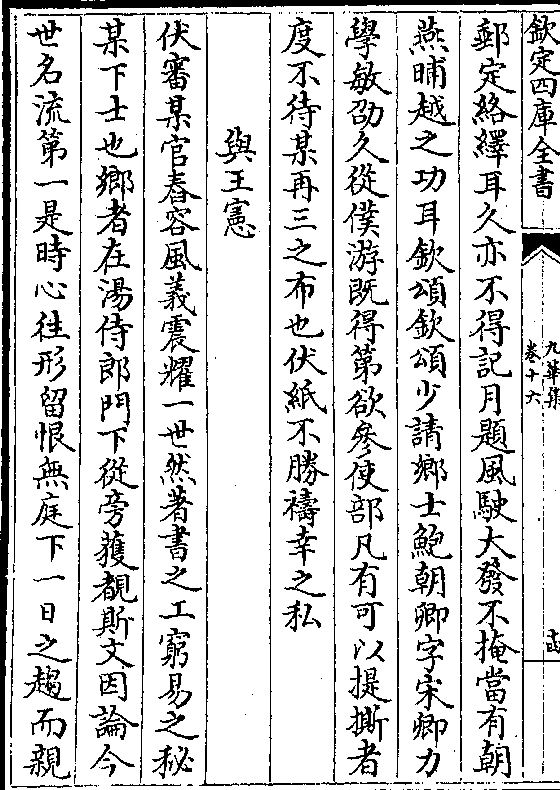 欽定四庫全書
九華集
卷十六
郵定絡繹耳久亦不得記月題風駛大發不掩當有朝
燕晡越之功耳欽頌欽頌少請鄉士鮑朝卿字宋卿力
學敏劭久從僕游既得第欲參使部凡有可以提撕者
度不待某再三之布也伏紙不勝禱幸之私
與王憲
伏審某官春容風義震耀一世然著書之工窮易之秘
某下士也鄉者在湯侍郎門下從旁獲覩斯文因論今
世名流第一是時心往形留恨無庭下一日之趨而親